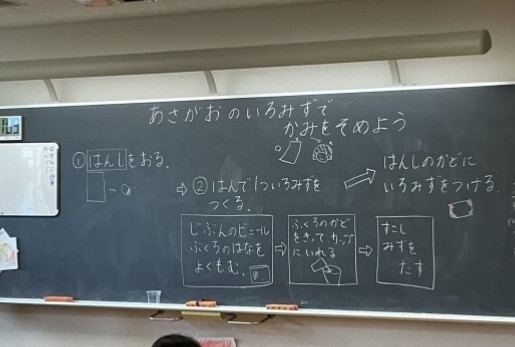 あさがおのいろみずで
かみをそめよう
①はんしをおる。
⇨②はんで1ついろみずを
つくる。
じぶんのビニール
ぶくろのはなを
よくもむ。
⇨
ふくろのかど
をきってカップ
にいれる
⇨
すこし
みずを
たす
はんしのかどに
いろみずをつける。